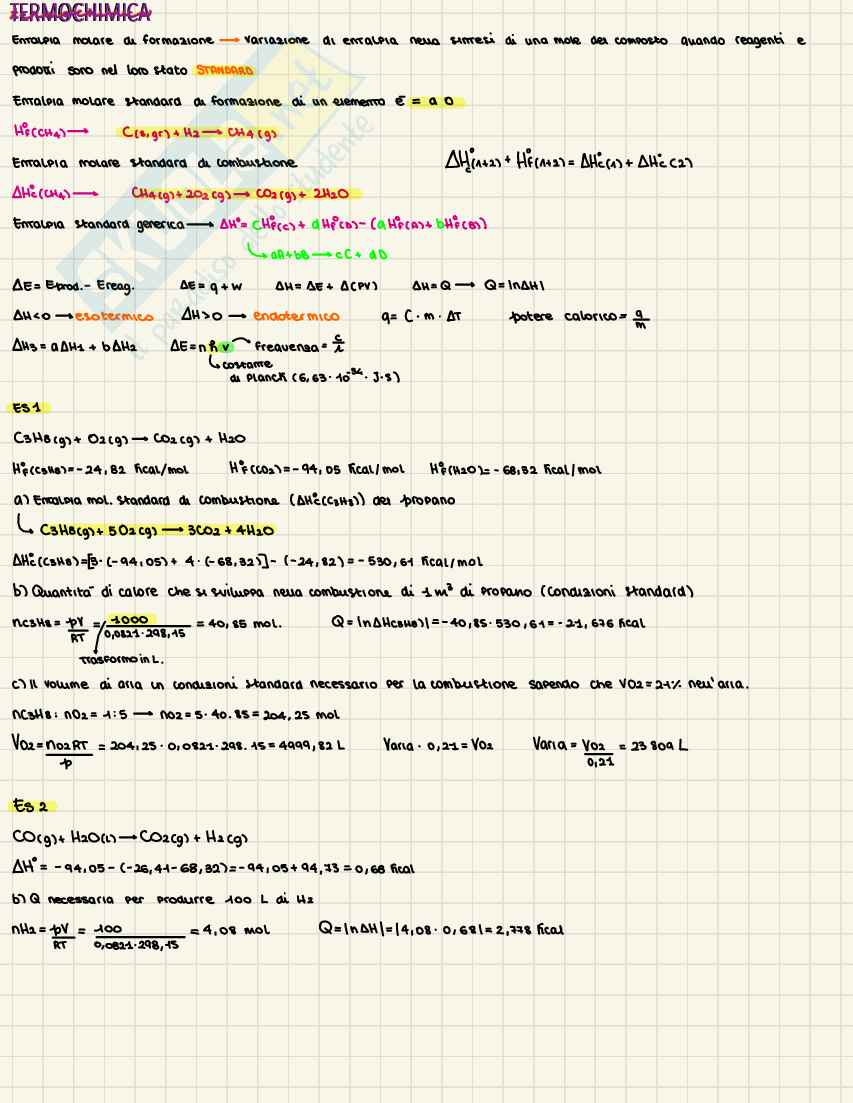 TERMOCHIMICA
Entalpia molare di formazione → variazione di entalpia nella sintesi di una mole del composto quando reagenti e
prodotti sono nel loro stato STANDARD
Entalpia molare standard di formazione di un elemento è = a 0
H°f(CH4) → C(s,gr) + H2 → CH4(g)
Entalpia molare standard di combustione ΔH°c(1+2) + H°f(1+2) = ΔH°c(1) + ΔH°c(2)
ΔH°c(CH4) → CH4(g) + 2O2(g) → CO2(g) + 2H2O
Entalpia standard generica → ΔH° = cH°f(C) + dH°f(D) - (aH°f(A) + bH°f(B))
aA + bB → cC + dD
ΔE = Eprod. - Ereag. ΔE = q + w ΔH = ΔE + Δ(PV) ΔH = Q → Q = |nΔH|
ΔH<0 → esotermico ΔH>0 → endotermico q = C · m · ΔT potere calorico = q/m
ΔH3 = aΔH1 + bΔH2 ΔE = n h ν frequenza = c/λ
costante
di Planck (6,63 · 10⁻³⁴ · J·s)
ES 1
C3H8(g) + O2(g) → CO2(g) + H2O
H°f(C3H8) = -24,82 kcal/mol H°f(CO2) = -94,05 kcal/mol H°f(H2O) = -68,32 kcal/mol
a) Entalpia mol. standard di combustione (ΔH°c(C3H8)) del propano
C3H8(g) + 5O2(g) → 3CO2 + 4H2O
ΔH°c(C3H8) = [3·(-94,05) + 4·(-68,32)] - (-24,82) = -530,61 kcal/mol
b) Quantità di calore che si sviluppa nella combustione di 1 m³ di propano (condizioni standard)
nC3H8 = pV/RT = 1000/0,0821·298,15 = 40,85 mol. Q = |nΔHC3H8| = -40,85·530,61 = -21,676 kcal
Trasformo in L.
c) Il volume di aria in condizioni standard necessario per la combustione sapendo che VO2 = 21% nell'aria.
nC3H8 : nO2 = 1:5 → nO2 = 5·40.85 = 204,25 mol
VO2 = nO2RT/p = 204,25·0,0821·298.15 = 4999,82 L Varia · 0,21 = VO2 Varia = VO2/0,21 = 23 809 L
ES 2
CO(g) + H2O(l) → CO2(g) + H2(g)
ΔH° = -94,05 - (-26,41 - 68,32) = -94,05 + 94,73 = 0,68 kcal
b) Q necessaria per produrre 100 L di H2
nH2 = pV/RT = 100/0,0821·298,15 = 4,08 mol Q = |nΔH| = |4,08 · 0,68| = 2,778 kcal